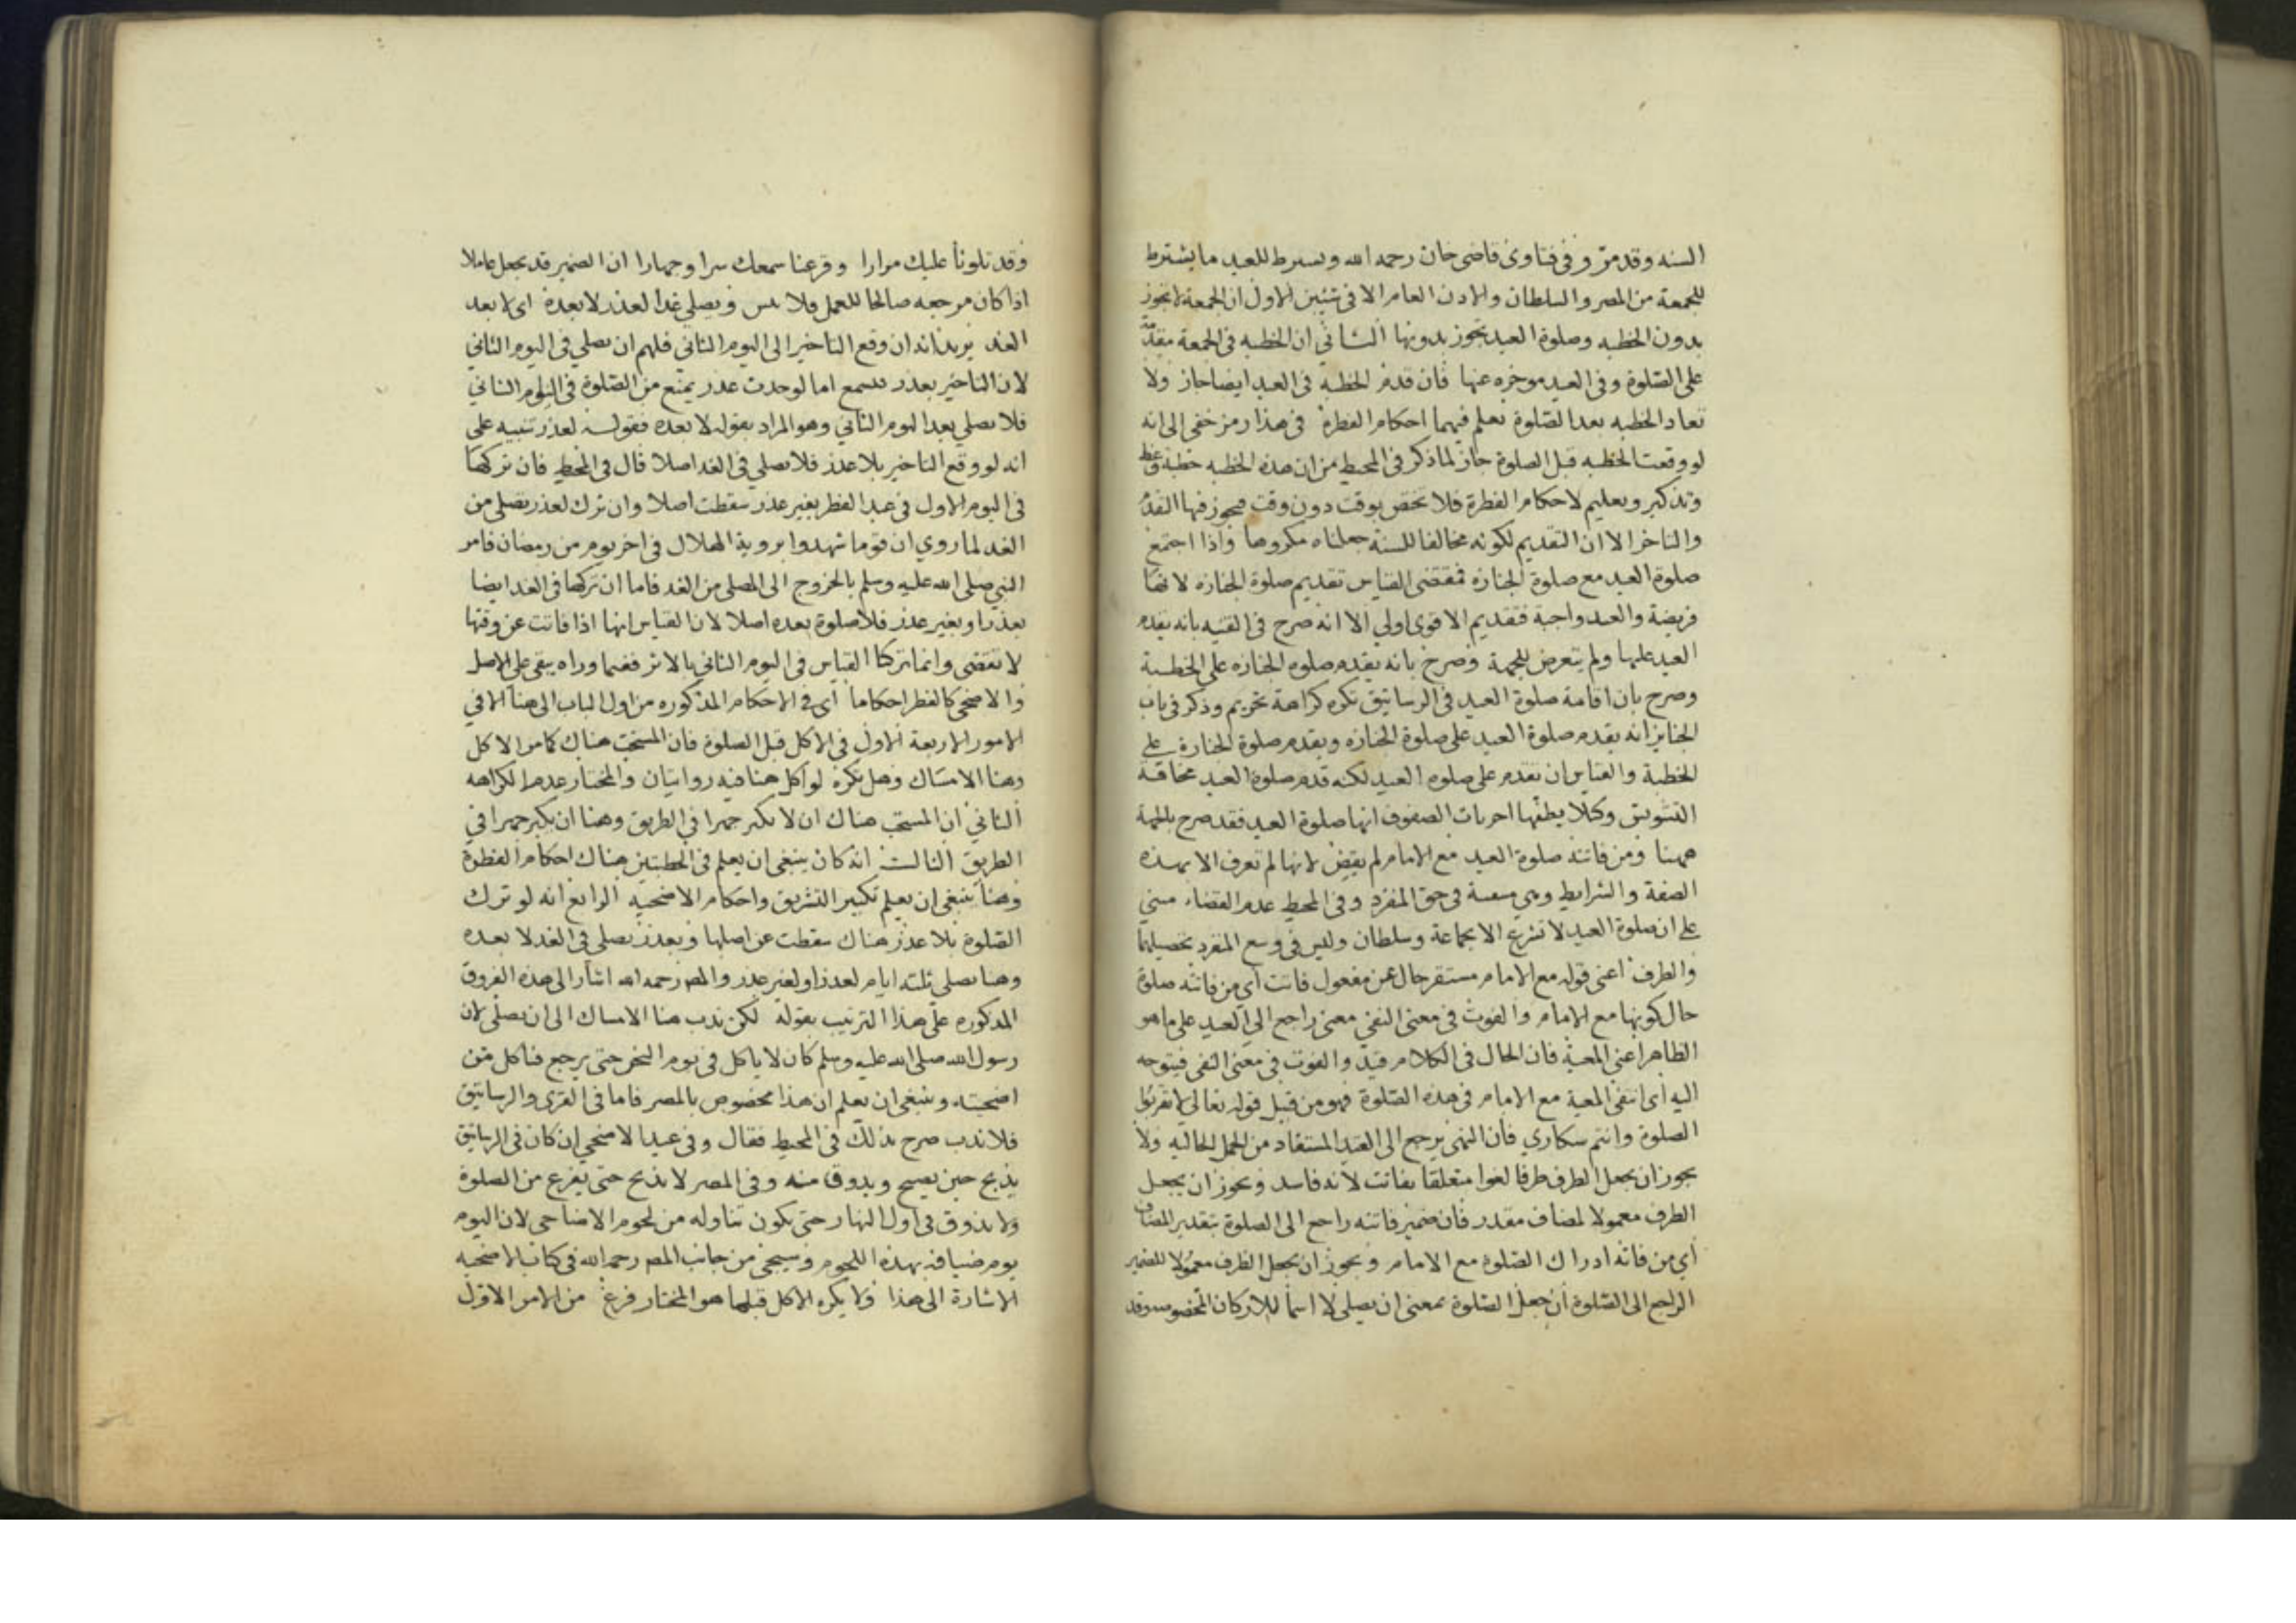 السنه وقد مرّ و فى فتاوى قاضى خان رحمه الله ويسرط للعيد ما يشترط
للجمعة من المصر والسلطان والاذن العام الا فى شيئين الاول ان الجمعة لا يجوز
بدون الخطبه وصلوة العيد يجوز بدونها الثاني ان الخطبه فى الجمعة مقدّمة
على الصّلوة وفى العيد موخره عنها فان قدم الخطبة فى العيد ايضا جاز ولا
تعاد الخطبه بعد الصّلوة يعلم فيهما احكام الفطرة فى هذا رمز خفى الى انه
لو وقعت الخطبه قبل الصلوة جاز لما ذكر فى المحيط من ان هذه الخطبه خطبة وعظ
وتذكير وتعليم لاحكام الفطرة فلا تختص بوقت دون وقت فيجوز فيها التقدّم
والتاخر الا ان التقديم لكونه مخالفا للسنة جعلناه مكروها واذا اجتمع
صلوة العيد مع صلوة الجنازه فمقتضى القياس تقديم صلوة الجنازه لانها
فريضة والعيد واجبة فتقديم الاقوى اولى الا انه صرح فى القنيه بانه يقدم
العيد عليها ولم يتعرض للجمعة وصرح بانه يقدم صلوه الجنازه على الخطبة
وصرح بان اقامة صلوة العيد فى الرساتيق تكره كراهة تحريم وذكر فى باب
الجنايز انه يقدم صلوة العيد على صلوة الجنازه ويقدم صلوة الجنازة على
الخطبة والقياس ان تقدم على صلوه العيد لكنه قدم صلوة العيد مخافة
التشويش وكلا يظنّها اخريات الصفوف انها صلوة العيد فقد صرح بالجمعة
ههنا ومن فاتته صلوة العيد مع الامام لم يقض لانها لم تعرف الا بهذه
الصفة والشرايط وهى منتفية فى حق المنفرد وفى المحيط عدم القضاء مبني
على ان صلوة العيد لا تشرع الا بجماعة وسلطان وليس فى وسع المنفرد تحصيلهما
والظرف اعنى قوله مع الامام مستقر حال عن مفعول فاتت اي من فاتته صلوة
حال كونها مع الامام والفوت فى معنى النفى معنى راجع الى العيد على ما هو
الظاهر اعنى المعية فان الحال فى الكلام قيد والفوت فى معنى النفى فيتوجه
اليه اى انتفى المعية مع الامام فى هذه الصّلوة فهو من قبيل قوله تعالى لا تقربوا
الصلوة وانتم سكارى فان النهى يرجع الى القيد المستفاد من الجمل الحاليه ولا
يجوز ان يجعل الظرف ظرفا لغوا متعلقا بفاتت لانه فاسد ويجوز ان يجعل
الظرف معمولا لمضاف مقدر فان ضمير فاتته راجع الى الصلوة بتقدير المضاف
اي من فاته ادراك الصّلوة مع الامام ويجوز ان يجعل الظرف معمولا للضمير
الراجع الى الصّلوة ان جعل الصّلوة بمعنى ان يصلى لا اسما للاركان المخصوصه وقد
وقد تلونا عليك مرارا وقرعنا سمعك سرا وجهارا ان الضمير قد يجعل عاملا
اذا كان مرجعه صالحا للعمل فلا تنس ويصلي غدا لعذر لا بعده اى لا بعد
الغد يريد انه ان وقع التاخير الى اليوم الثاني فلهم ان يصلي فى اليوم الثاني
لان التاخير بعذر اما لو حدث عذر يمنع من الصّلوة فى اليوم الثاني
فلا يصلي بعد اليوم الثاني وهو المراد بقوله لا بعده فقوله لعذر تنبيه على
انه لو وقع التاخير بلا عذر فلا يصلي فى الغد اصلا قال فى المحيط فان تركها
فى اليوم الاول فى عيد الفطر بغير عذر سقطت اصلا وان ترك لعذر يصلي من
الغد لما روي ان قوما شهدوا بروية الهلال فى اخر يوم من رمضان فامر
النبي صلى الله عليه وسلم بالخروج الى المصلى من الغد فاما ان تركها فى الغد ايضا
بعذر او بغير عذر فلا صلوة بعده اصلا لان القياس انها اذا فاتت عن وقتها
لا تقضى وانما تركنا القياس فى اليوم الثاني بالاثر ففيما وراه يبقى على الاصل
والاضحى كالفطر احكاما اى فى الاحكام المذكوره من اول الباب الى هنا الا فى
الامور الاربعة الاول فى الاكل قبل الصلوة فان المستحب هناك كا من الاكل
وهنا الامساك وهل يكره لو اكل هنا فيه روايتان والمختار عدم الكراهه
الثاني ان المستحب هناك ان لا يكبر جهرا فى الطريق وهنا ان يكبر جهرا في
الطريق الثالث انه كان ينبغى ان يعلم فى الخطبتين هناك احكام الفطرة
وهنا ينبغى ان يعلم تكبير التشريق واحكام الاضحيه الرابع انه لو ترك
الصّلوة بلا عذر هناك سقطت عن اصلها وبعذر يصلى فى الغد لا بعده
وهنا يصلى ثلثه ايام لعذر او لغير عذر والمصر رحمه الله اشار الى هذه الفروق
المذكوره على هذا الترتيب بقوله لكن ندب هنا الامساك الى ان يصلى لان
رسول الله صلى الله عليه وسلم كان لا ياكل فى يوم النحر حتى يرجع فياكل من
اضحيته وينبغى ان يعلم ان هذا مخصوص بالمصر فاما فى القرى والرساتيق
فلا ندب صرح بذلك فى المحيط فقال وفى عيد الاضحى ان كان فى الرساتيق
يذبح حين يصبح ويذوق منه وفى المصر لا يذبح حتى يفرغ من الصلوة
ولا يذوق فى اول النهار حتى يكون تناوله من لحوم الاضاحى لان اليوم
يوم ضيافة بهذه اللحوم وسيجئ من جانب المصر رحمه الله فى كتاب الاضحيه
الاشارة الى هذا ولا يكره الاكل قبلها هو المختار فرغ من الامر الاوّل